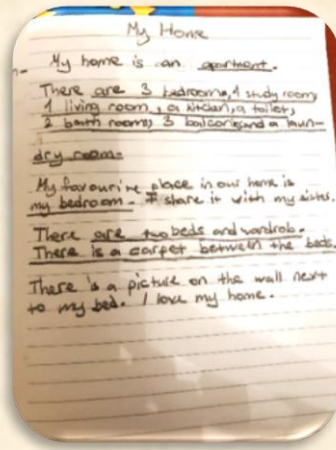 My Home
My home is an apartment.
There are 3 bedrooms, 1 study room,
1 living room, a kitchen, a toilet,
2 bath rooms, 3 balconies and a laun-
dry room.
My favourite place in our home is
my bedroom. I share it with my sister.
There are two beds and wardrob.
There is a carpet between the beds.
There is a picture on the wall next
to my bed. I love my home.